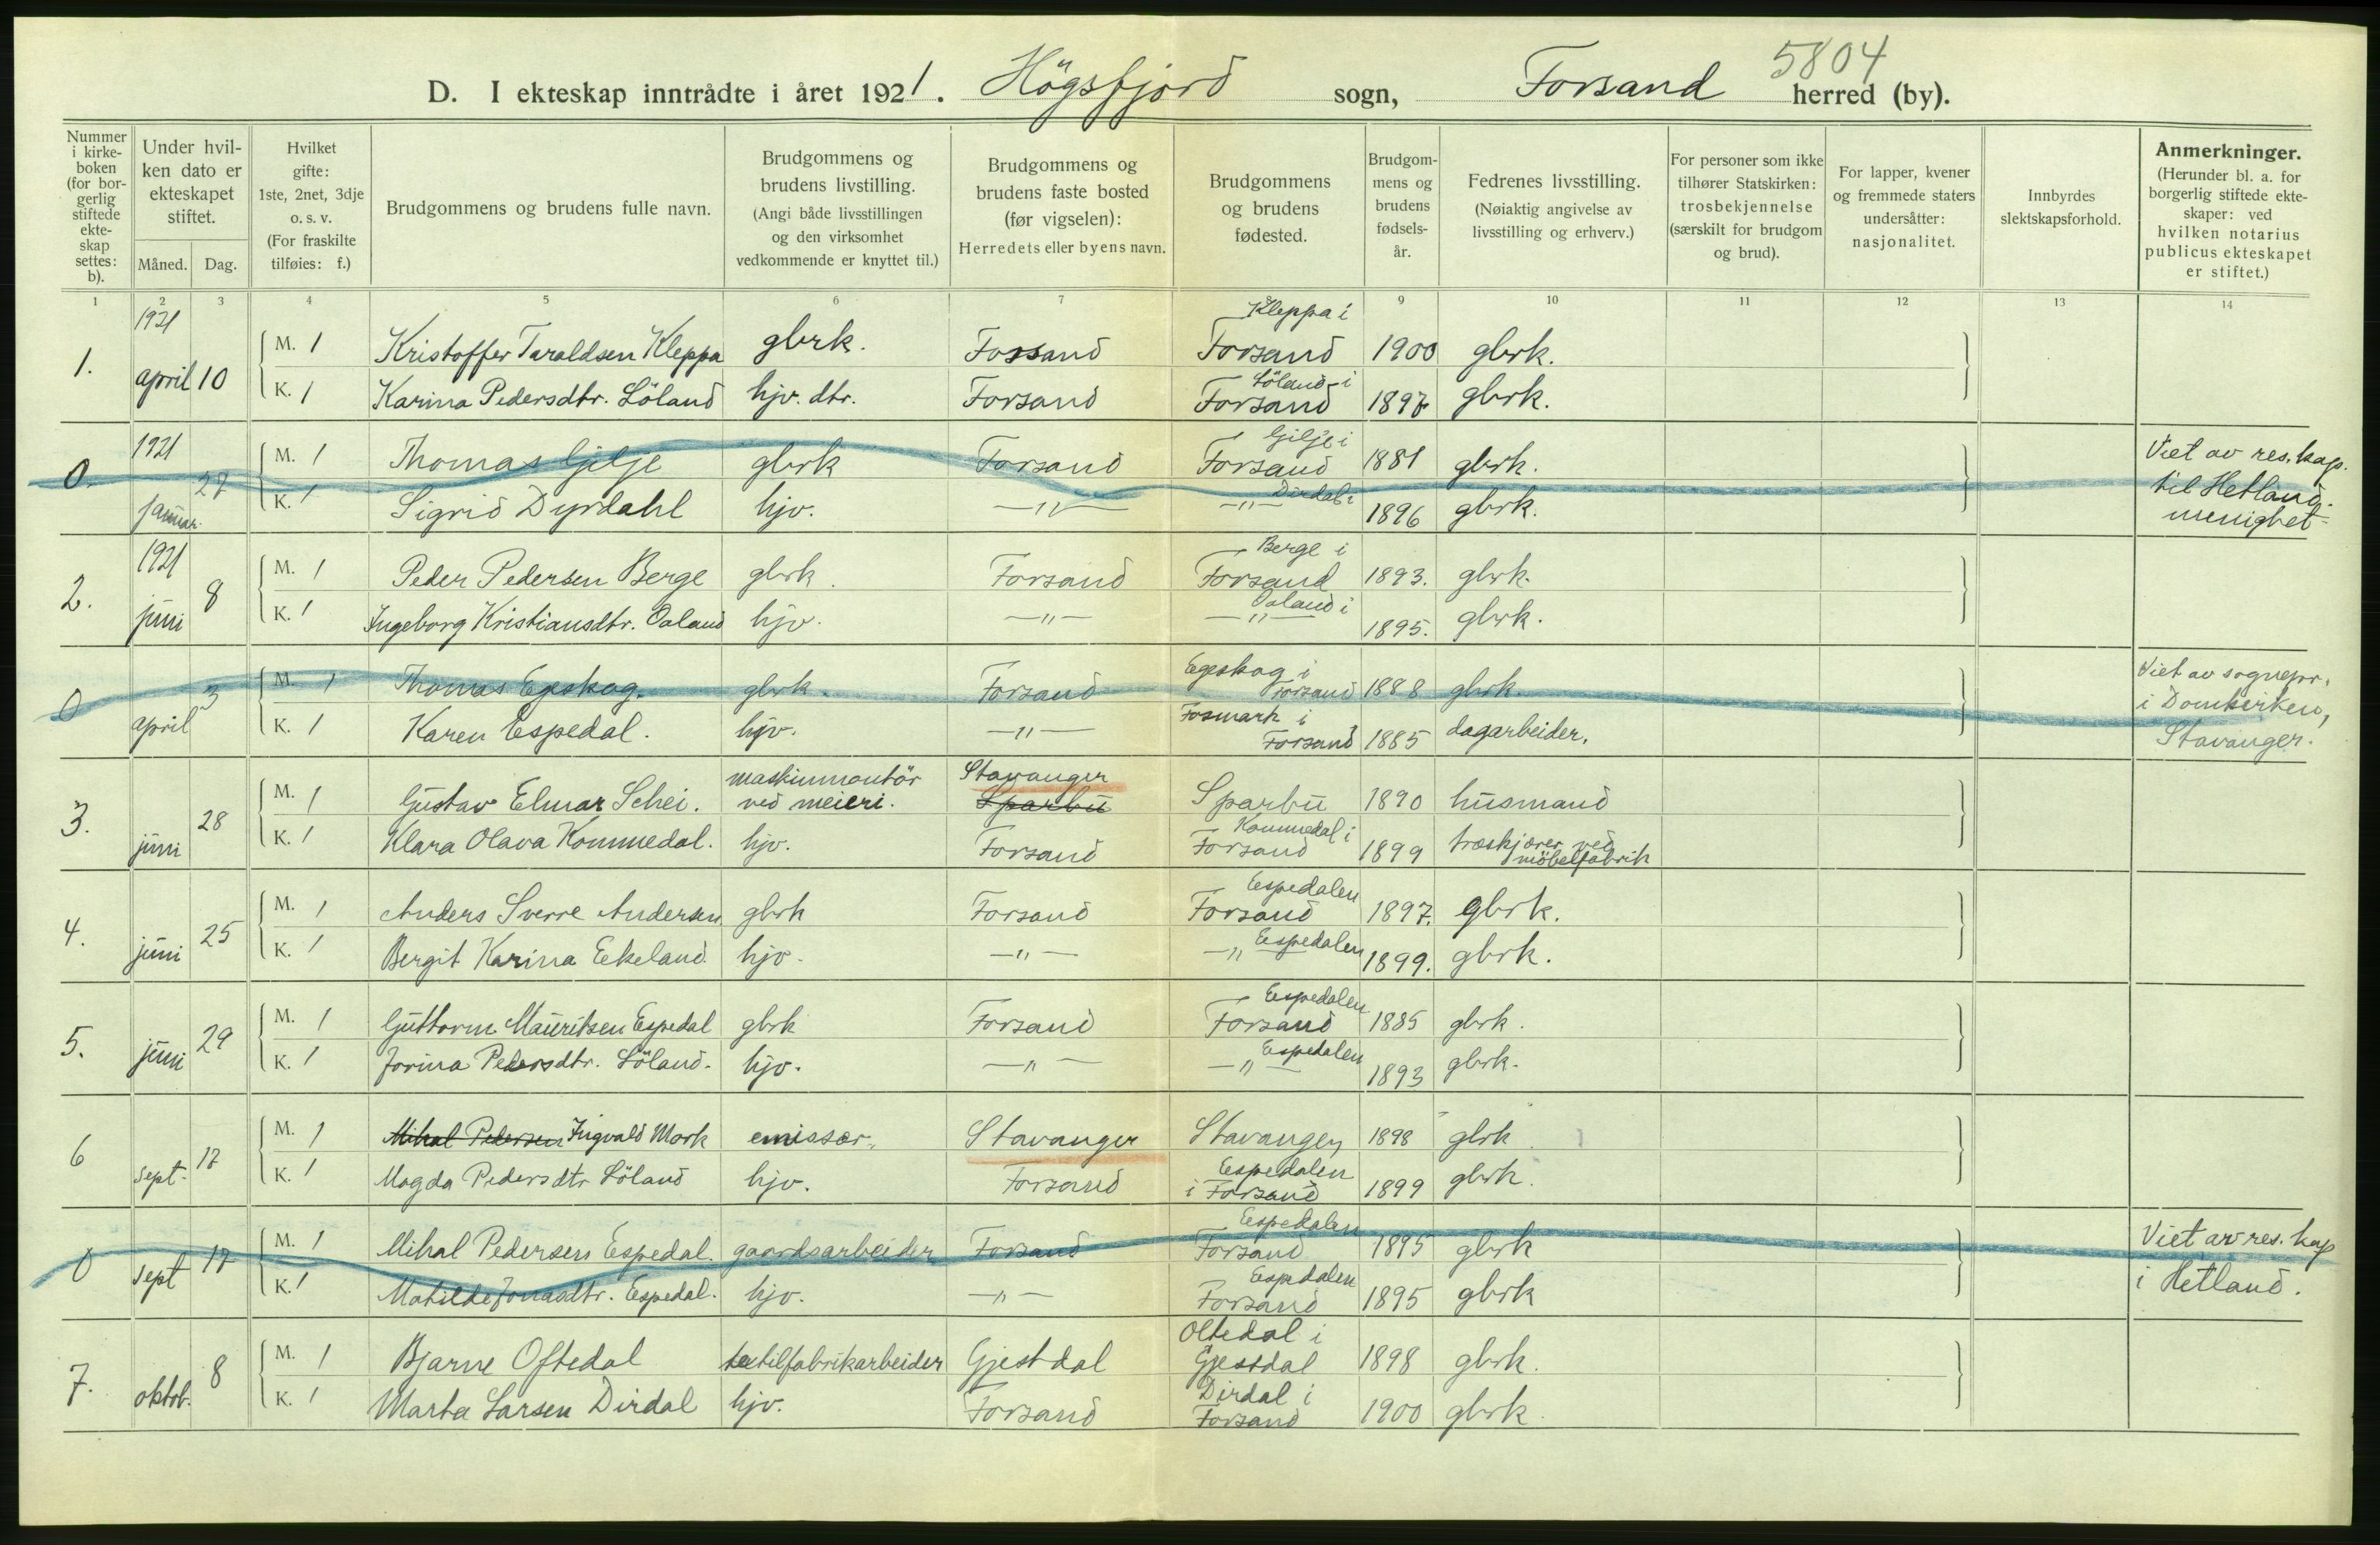 5804
D. I ekteskap inntrådte i året 1921. Högsfjord sogn, Forsand herred (by).
Nummer i kirkeboken (for borgerlig stiftede ekteskap settes: b).
Under hvilken dato er ekteskapet stiftet.
Måned. Dag.
Hvilket gifte: 1ste, 2net, 3dje o. s. v. (For fraskilte tilføies: f.)
Brudgommens og brudens fulle navn.
Brudgommens og brudens livstilling. (Angi både livsstillingen og den virksomhet vedkommende er knyttet til.)
Brudgommens og brudens faste bosted (før vigselen): Herredets eller byens navn.
Brudgommens og brudens fødested.
Brudgommens og brudens fødselsår.
Fedrenes livsstilling. (Nøiaktig angivelse av livsstilling og erhverv.)
For personer som ikke tilhører Statskirken: trosbekjennelse (særskilt for brudgom og brud).
For lapper, kvener og fremmede staters undersåtter: nasjonalitet.
Innbyrdes slektskapsforhold.
Anmerkninger. (Herunder bl. a. for borgerlig stiftede ekteskaper: ved hvilken notarius publicus ekteskapet er stiftet.)
1 2 3 4 5 6 7 9 10 11 12 13 14
1. 1921 april 10 M. 1 Kristoffer Taraldsen Kleppa gbrk. Forsand Kleppa i Forsand 1900 gbrk.
K. 1 Karina Pedersdtr. Löland hjv. dtr. Forsand Löland i Forsand 1897 gbrk.
0. 1921 januar. 27 M. 1 Thomas Gilje gbrk Forsand Gilje i Forsand 1881 gbrk. Viet av res. kap. til Hetland menighet
K. 1 Sigrid Dyrdahl hjv. —"— —"— Dirdal i 1896 gbrk.
2. 1921 juni 8 M. 1 Peder Pedersen Berge gbrk. Forsand Berge i Forsand 1893. gbrk.
K. 1 Ingeborg Kristiansdtr. Oaland hjv. —"— —"— Oaland i 1895. gbrk.
0 april 3 M. 1 Thomas Egeskog. gbrk. Forsand Egeskog i Forsand 1888 gbrk. Viet av sognepr. i Domkirken, Stavanger.
K. 1 Karen Espedal. hjv. —"— Fosmark i Forsand 1885 dagarbeider.
3. juni 28 M. 1 Gustav Elmar Schei. maskinmontör ved meieri. Stavanger Sparbu Sparbu 1890 husmand
K. 1 Klara Olava Kommedal. hjv. Forsand Kommedal i Forsand 1899 træskjærer ved möbelfabrik
4. juni 25 M. 1 Anders Sverre Andersen gbrk Forsand Espedalen Forsand 1897. gbrk.
K. 1 Bergit Karina Eekeland. hjv. —"— —"— Espedalen 1899. gbrk.
5. juni 29 M. 1 Guttorm Mauritsen Espedal gbrk Forsand Espedalen Forsand 1885 gbrk.
K. 1 Jorina Pedersdtr. Löland. hjv. —"— —"— Espedalen 1893 gbrk.
6 sept. 17 M. 1 Mihal Pedersen Ingvald Mork emissær. Stavanger Stavanger 1898 gbrk.
K. 1 Magda Pedersdtr Löland hjv. Forsand Espedalen i Forsand 1899 gbrk.
0 sept 17 M. 1 Mihal Pedersen Espedal gaardsarbeider Forsand Espedalen Forsand 1895 gbrk Viet av res. kap i Hetland.
K. 1 Matilde Jonasdtr. Espedal. hjv. —"— Espedalen Forsand 1895 gbrk
7. oktob. 8 M. 1 Bjarne Oftedal textilfabrikarbeider Gjestdal Oltedal i Gjestdal 1898 gbrk.
K. 1 Marta Larsen Dirdal hjv. Forsand Dirdal i Forsand 1900 gbrk.